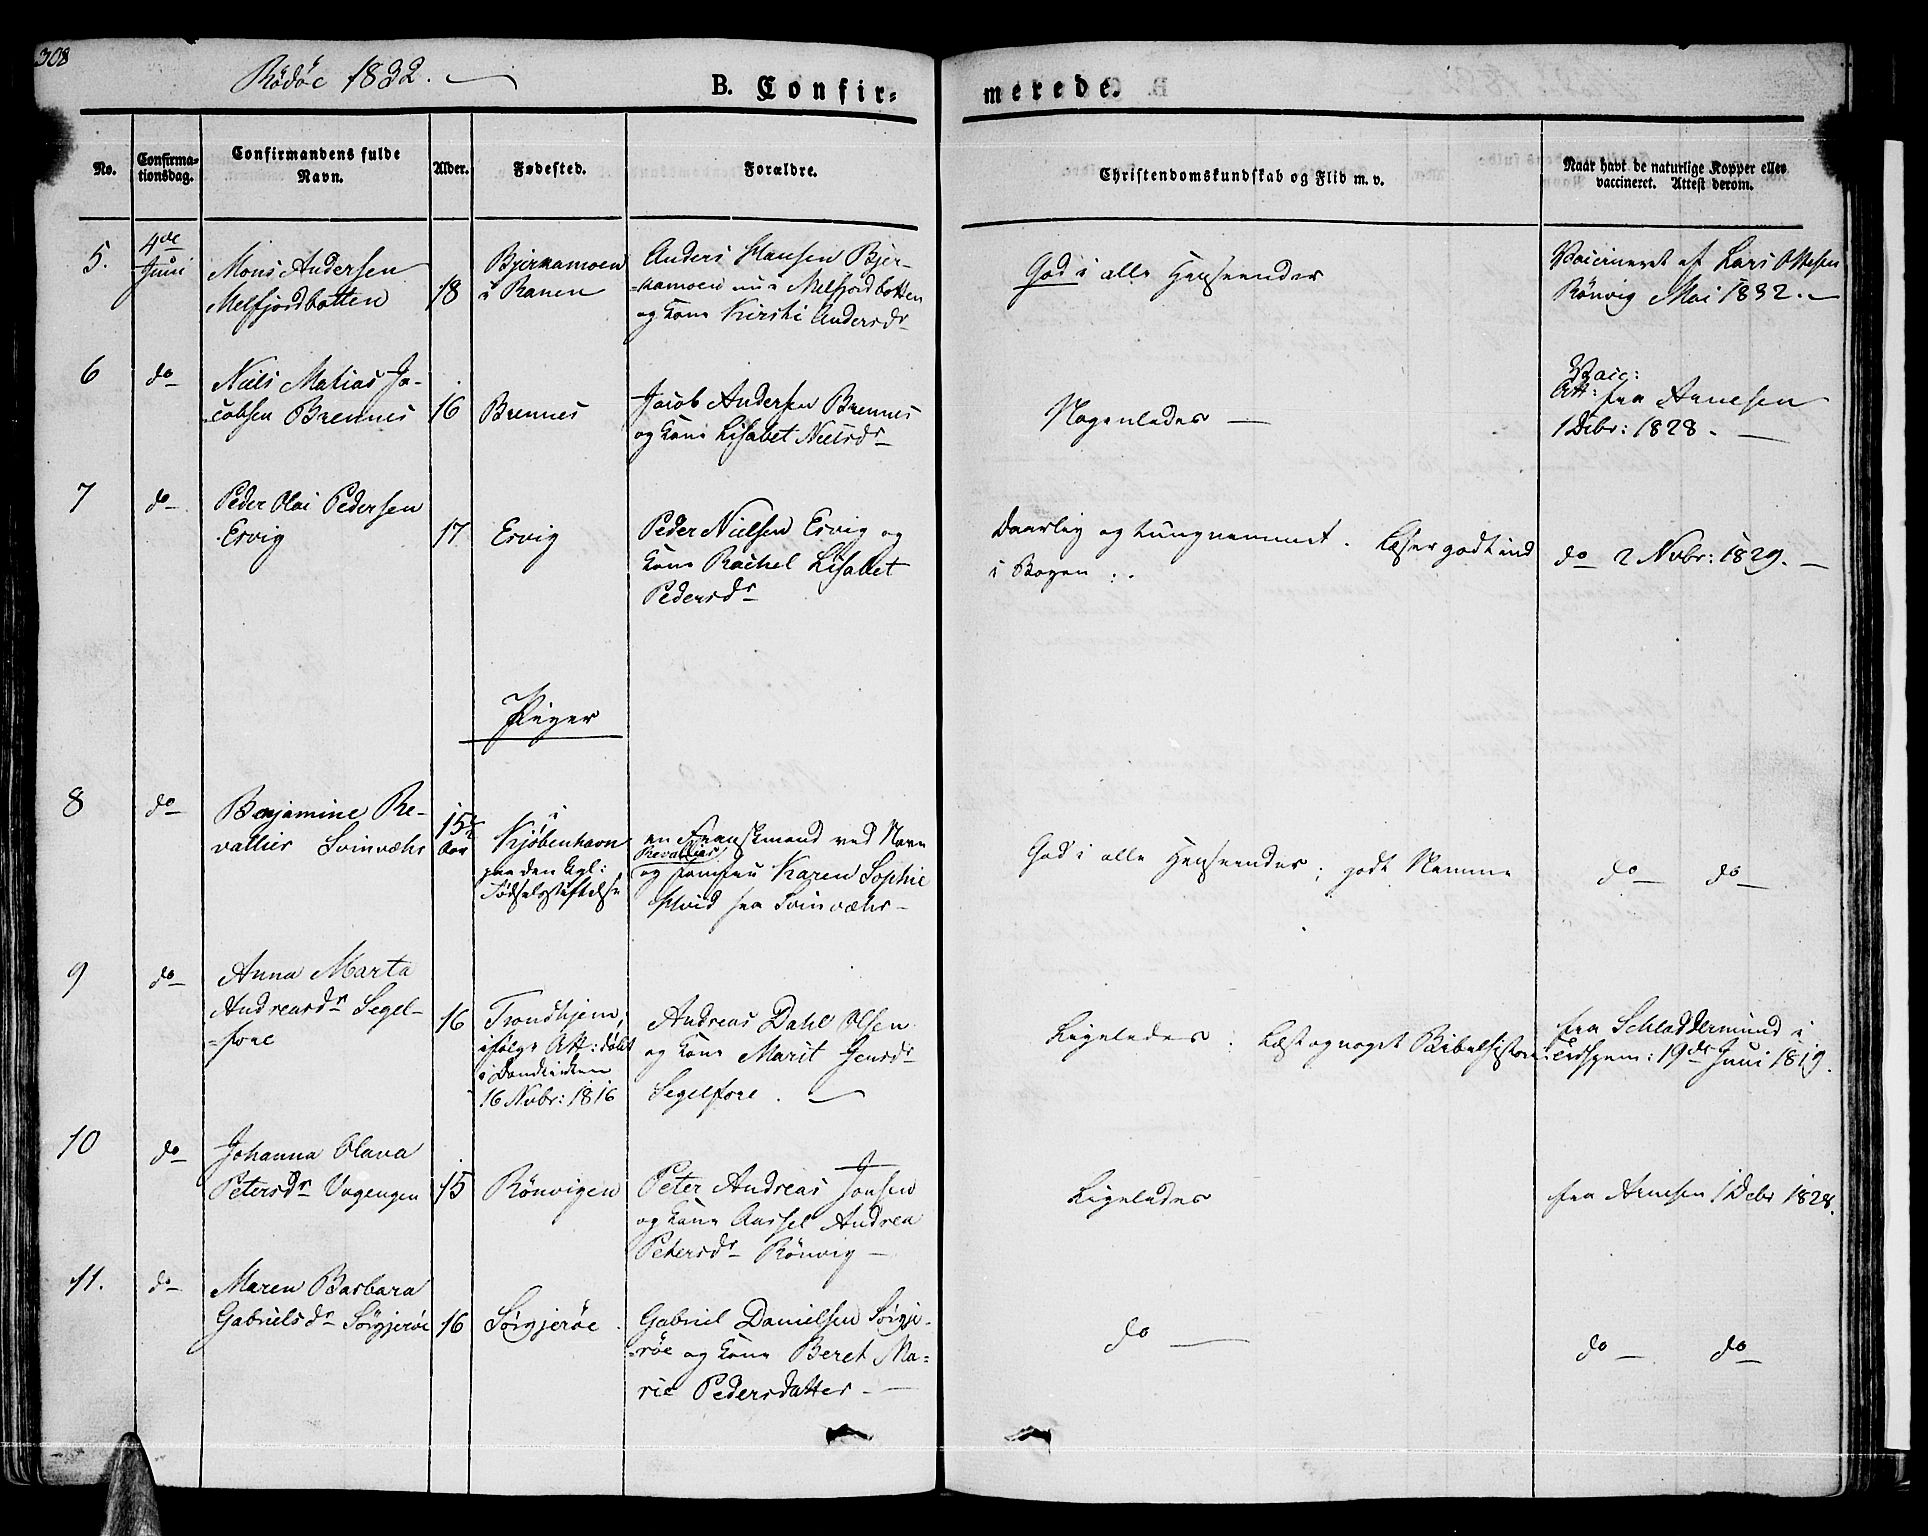 308
Rödöe 1832. —
B. Confir-
merede.
No.
Confirma-
tionsdag.
Confirmandens fulde
Navn.
Alder.
Fødested.
Forældre.
Christendomskundskab og Flid m. v.
Naar havt de naturlige Kopper eller
vaccineret. Attest derom.
5.
4de
Juni
Mons Andersen
Melfjordbotten
18
Bjernamoen
i Ranen
Anders Hansen Bjer-
namoen nu i Melfjordbotten
og Kone Kirsti Andersdr
God i alle Henseender
Vaccineret af Lars Ottesen
Rönvig Mai 1832. —
6
do
Niels Matias Ja-
cobsen Brennes
16
Brennes
Jacob Andersen Brennes
og Kone Lisabet Nielsdr
Nogenledes —
Vacc:
Att: fra Arnesen
1 Decbr: 1828. —
7
do
Peder Olai Pedersen
Esvig
17
Esvig
Peder Nielsen Esvig og
Kone Rachel Lisabet
Pedersdr
Daarlig og tungnemmet. Læser godt ind
i Bogen.
do 2 Novbr: 1829. —
Piger
8
do
Benjamine Re-
vallier Svinvæhr
15½
Aar
i
Kjöbenhavn
paa den kgl:
Födselsstiftelse
en Franskmand ved Navn
Revallier
og Jomfru Karen Sophie
Hvid fra Svinvæhr —
God i alle Henseender; godt Nemme
do — do —
9
do
Anna Marta
Andreasdr Segel-
fore
16
Trondhjem,
ifølge Att: døbt
i Domkirken
16 Novbr: 1816
Andreas Dahl Olsen
og Kone Marit Jensdr
Segelfore. —
Ligeledes: Læst og noget Bibelhistorie
fra Schladdermund i
Trdhjem: 19de Juni 1819.
10
do
Johanna Olava
Petersdr Vagengen
15
Rönvigen
Peter Andreas Jonsen
og Kone Assel Andrea
Petersdr Rönvig —
Ligeledes
fra Arnesen 1 Decbr 1828.
11.
do
Maren Barbara
Gabrielsdr Sörgjeröe
16
Sörgjeröe.
Gabriel Danielsen Sörgje-
röe og Kone Beret Ma-
rie Pedersdatter —
do —
do — do —